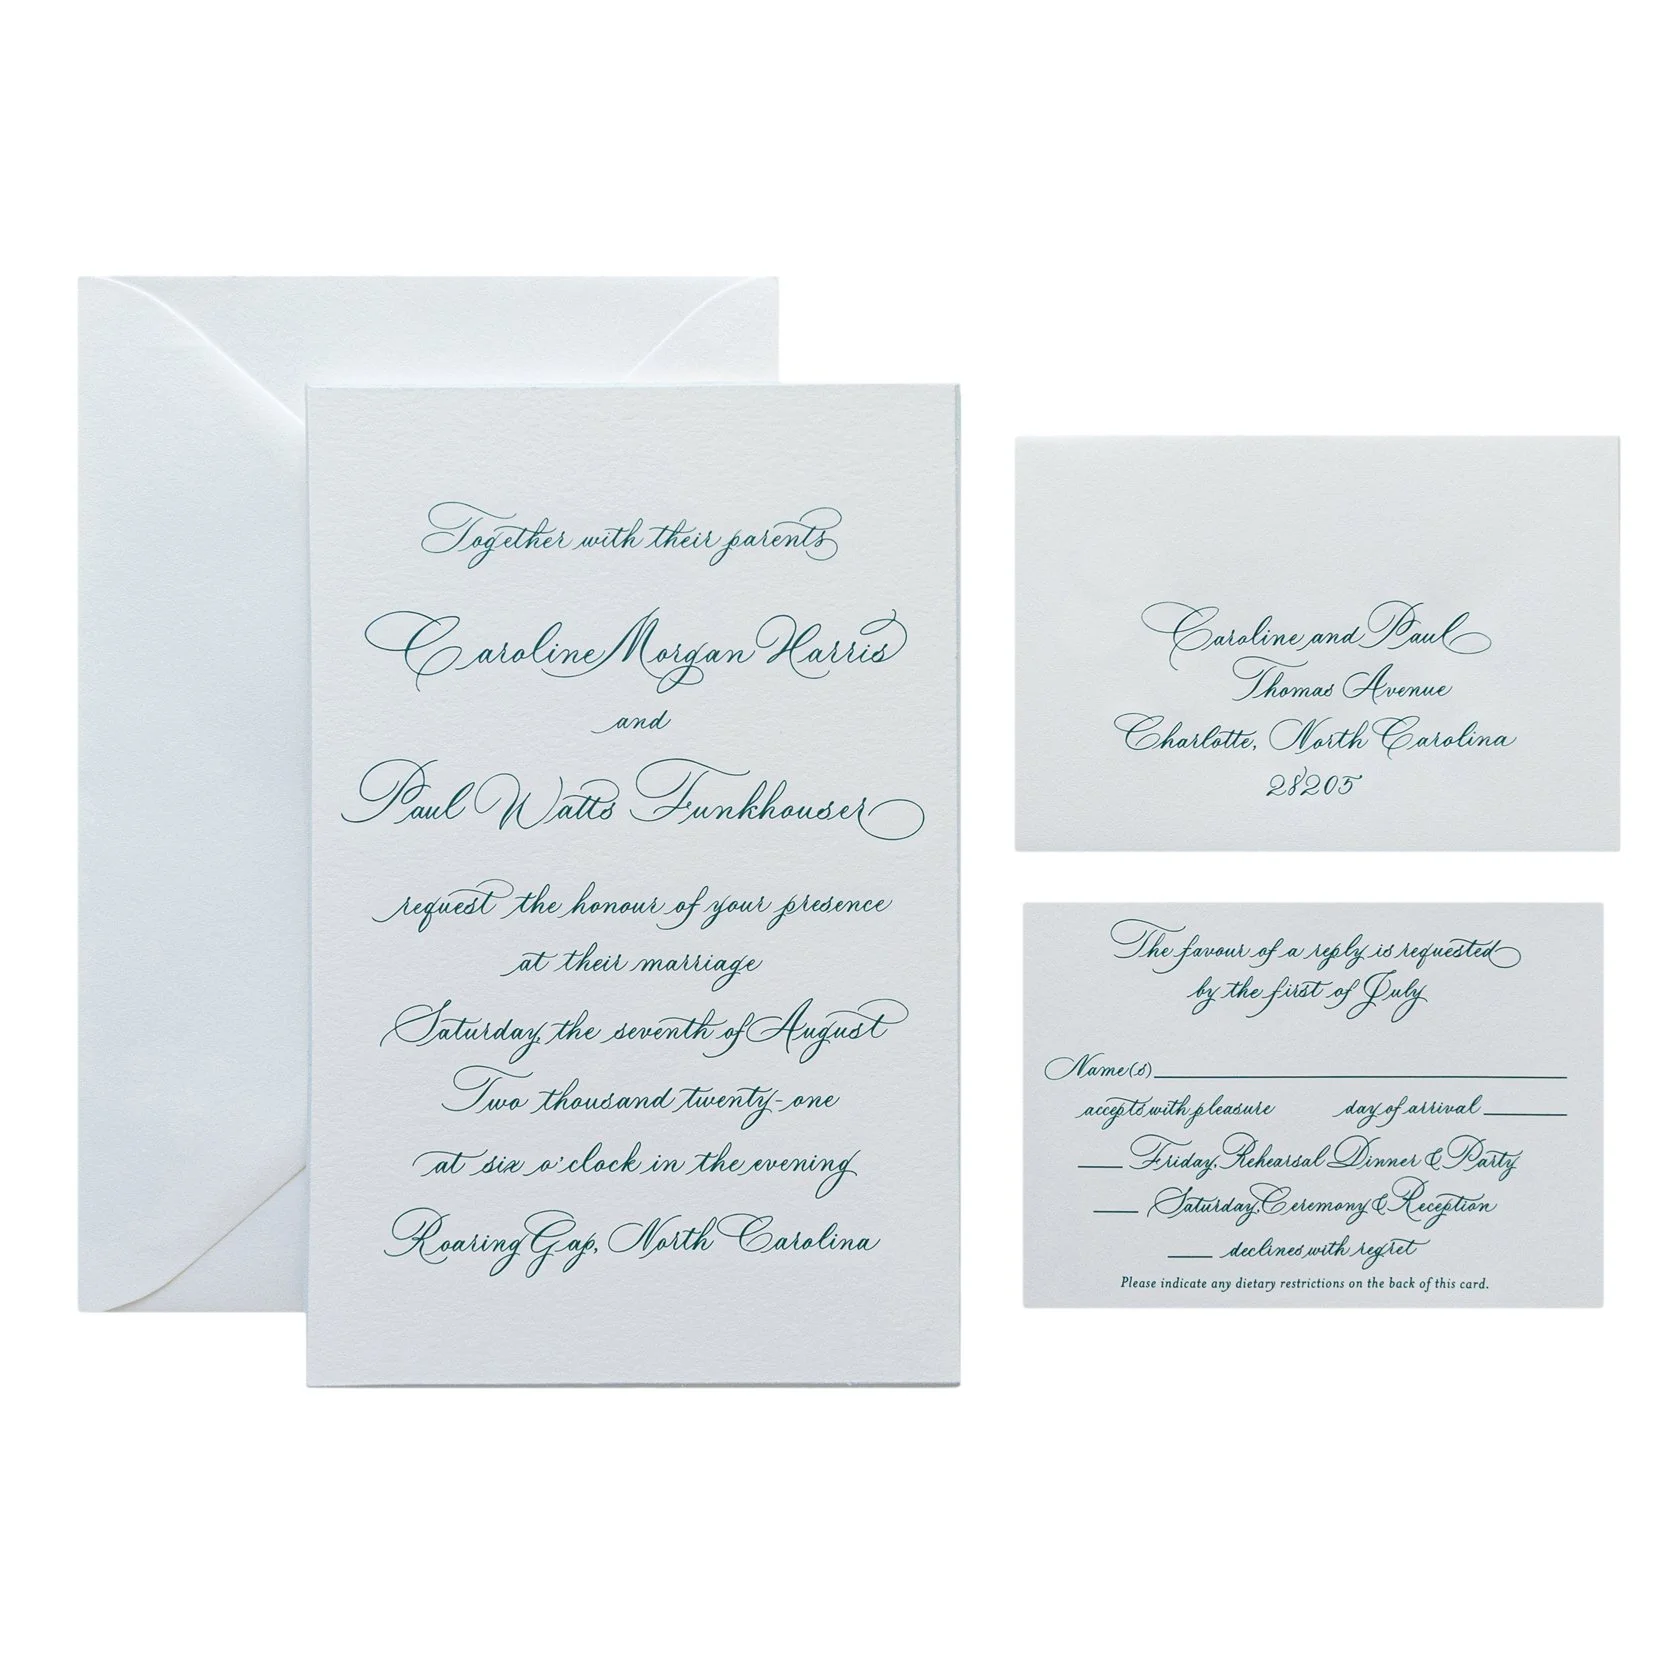 Together with their parents
Caroline Morgan Harris
and
Paul Watts Funkhouser
request the honour of your presence
at their marriage
Saturday, the seventh of August
Two thousand twenty-one
at six o'clock in the evening
Roaring Gap, North Carolina
Caroline and Paul
Thomas Avenue
Charlotte, North Carolina
28205
The favour of a reply is requested
by the first of July
Name(s)
accepts with pleasure day of arrival
Friday, Rehearsal Dinner & Party
Saturday, Ceremony & Reception
declines with regret
Please indicate any dietary restrictions on the back of this card.